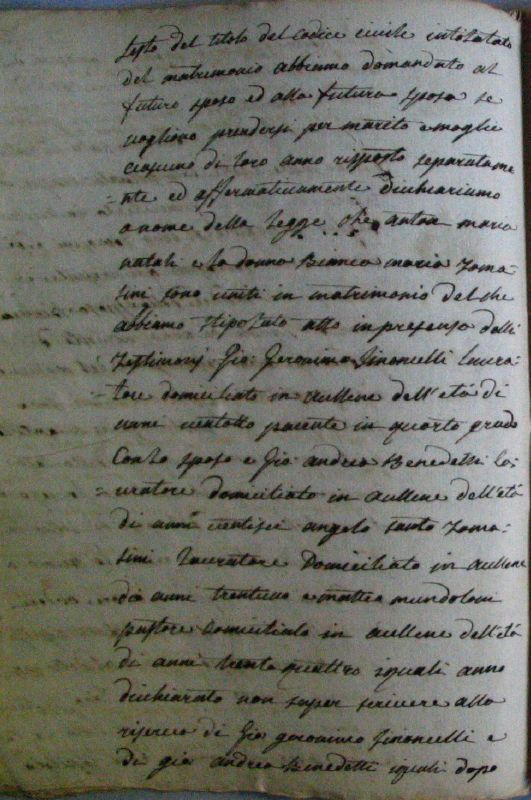 sesto del titolo del codice civile intitolato
del matrimonio abbiamo domandato al
futuro sposo ed alla futura sposa se
vogliono prendersi per marito e moglie
ciascuno di loro anno risposto separatame
=nte ed affermativamente dichiariamo
a nome della legge che anton maria
natali e la donna Bianca maria Toma
sini sono uniti in matrimonio del che
abbiamo stipolato atto in presenza delli
Testimonj Gio: Geronimo Simoncelli lavora=
tore domiciliato in aullene dell'età di
anni ventotto parente in quarto grado
con lo sposo e Gio andrea Benedetti la=
voratore domiciliato in aullene dell'età
di anni ventisei angelo santo Toma=
sini lavoratore Domiciliato in aullene
di anni trentuno e mattea mondoloni
pastore domiciliato in aullene dell'età
di anni trenta quattro i quali anno
dichiarato non saper scrivere alla
riserva di Gio geronimo Simoncelli e
di gio andrea Benedetti i quali dopo